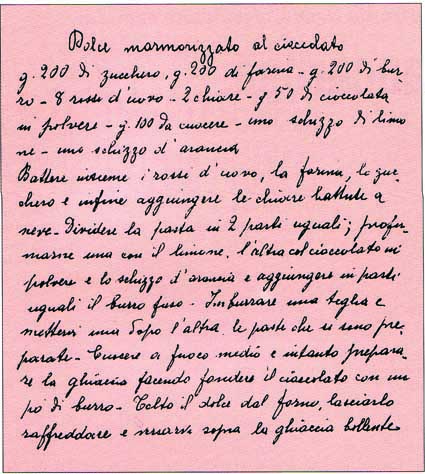 Dolce marmorizzato al cioccolato
g. 200 di zucchero, g. 200 di farina - g. 200 di bur-
ro - 8 rossi d'uovo - 2 chiare - g 50 di cioccolata
in polvere - g. 100 da cuocere - uno schizzo di limo
ne - uno schizzo d'arancia
Battere insieme i rossi d'uovo, la farina, lo zuc-
chero e infine aggiungere le chiare battute a
neve - Dividere la pasta in 2 parti uguali; profu-
marne una con il limone, l'altra col cioccolato in
polvere e lo schizzo d'arancia e aggiungere in parti
uguali il burro fuso - Imburrare una teglia e
mettervi una dopo l'altra le paste che si sono pre-
parate - Cuocere a fuoco medio e intanto prepara-
re la ghiaccia facendo fondere il cioccolato con un
po' di burro - Tolto il dolce dal forno, lasciarlo
raffreddare e versarvi sopra la ghiaccia bollente